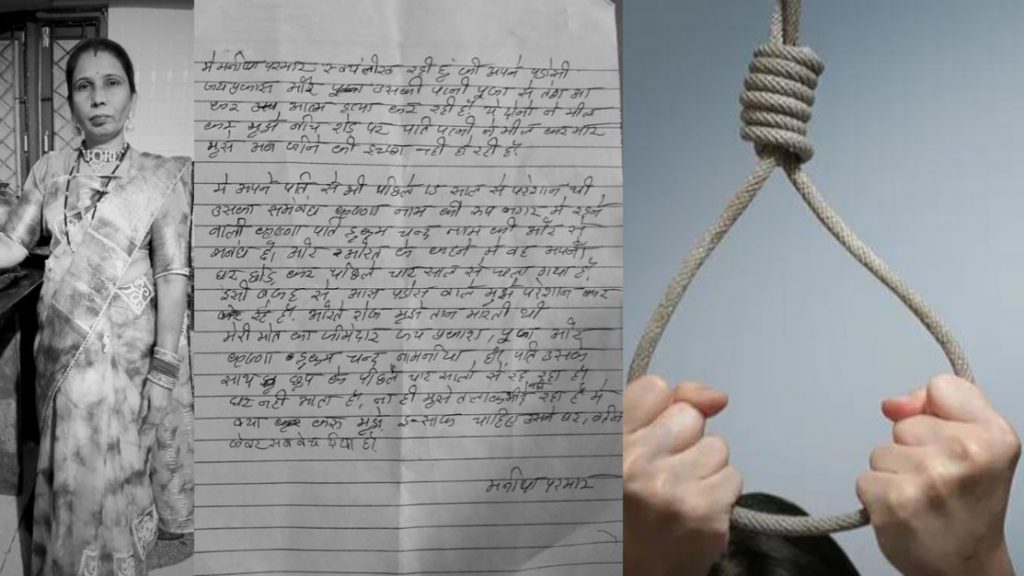 मे मनीषा परमार स्वयं लीख रही हुं की अपने पडोसी
जयप्रकाश और उसकी पत्नी पूजा से तंग आ
कर आत्म हत्या कर रही हूँ ये दोनो ने मील
कर मुझे नीच रोड पर पति पत्नी ने मील कर मार
मुझे अब जीने की इच्छा नही हो रही है।
मे अपने पति से भी पीछले 15 साल से परेशान थी
उसका समबंध कृष्णा नाम की रूप नगर मे रहने
वाली कृष्णा पति हुकुम चन्द नाम की औरत से
संबंध है। और औरत के कहने मे वह अपना
घर छोड़ कर पीछले चार साल से चला गया है।
इसी वजह से आस पडोस वाले मुझे परेशान कर
रहे है। औरते रोज मुझे ताना मारती थी
मेरी मौत का जीमेदार जय प्रकाश, पूजा और
कृष्णा हुकुम चन्द नामनीया है। पति उसके
साथ छुप के पीछले चार सालो से रह रहा है।
घर नही आता है, ना ही मुझे तलाक दे रहा है मे
क्या करु मुझे इन्साफ चाहिए उसने घर,
जेवर सब बेच दीया है।
मनीषा परमार